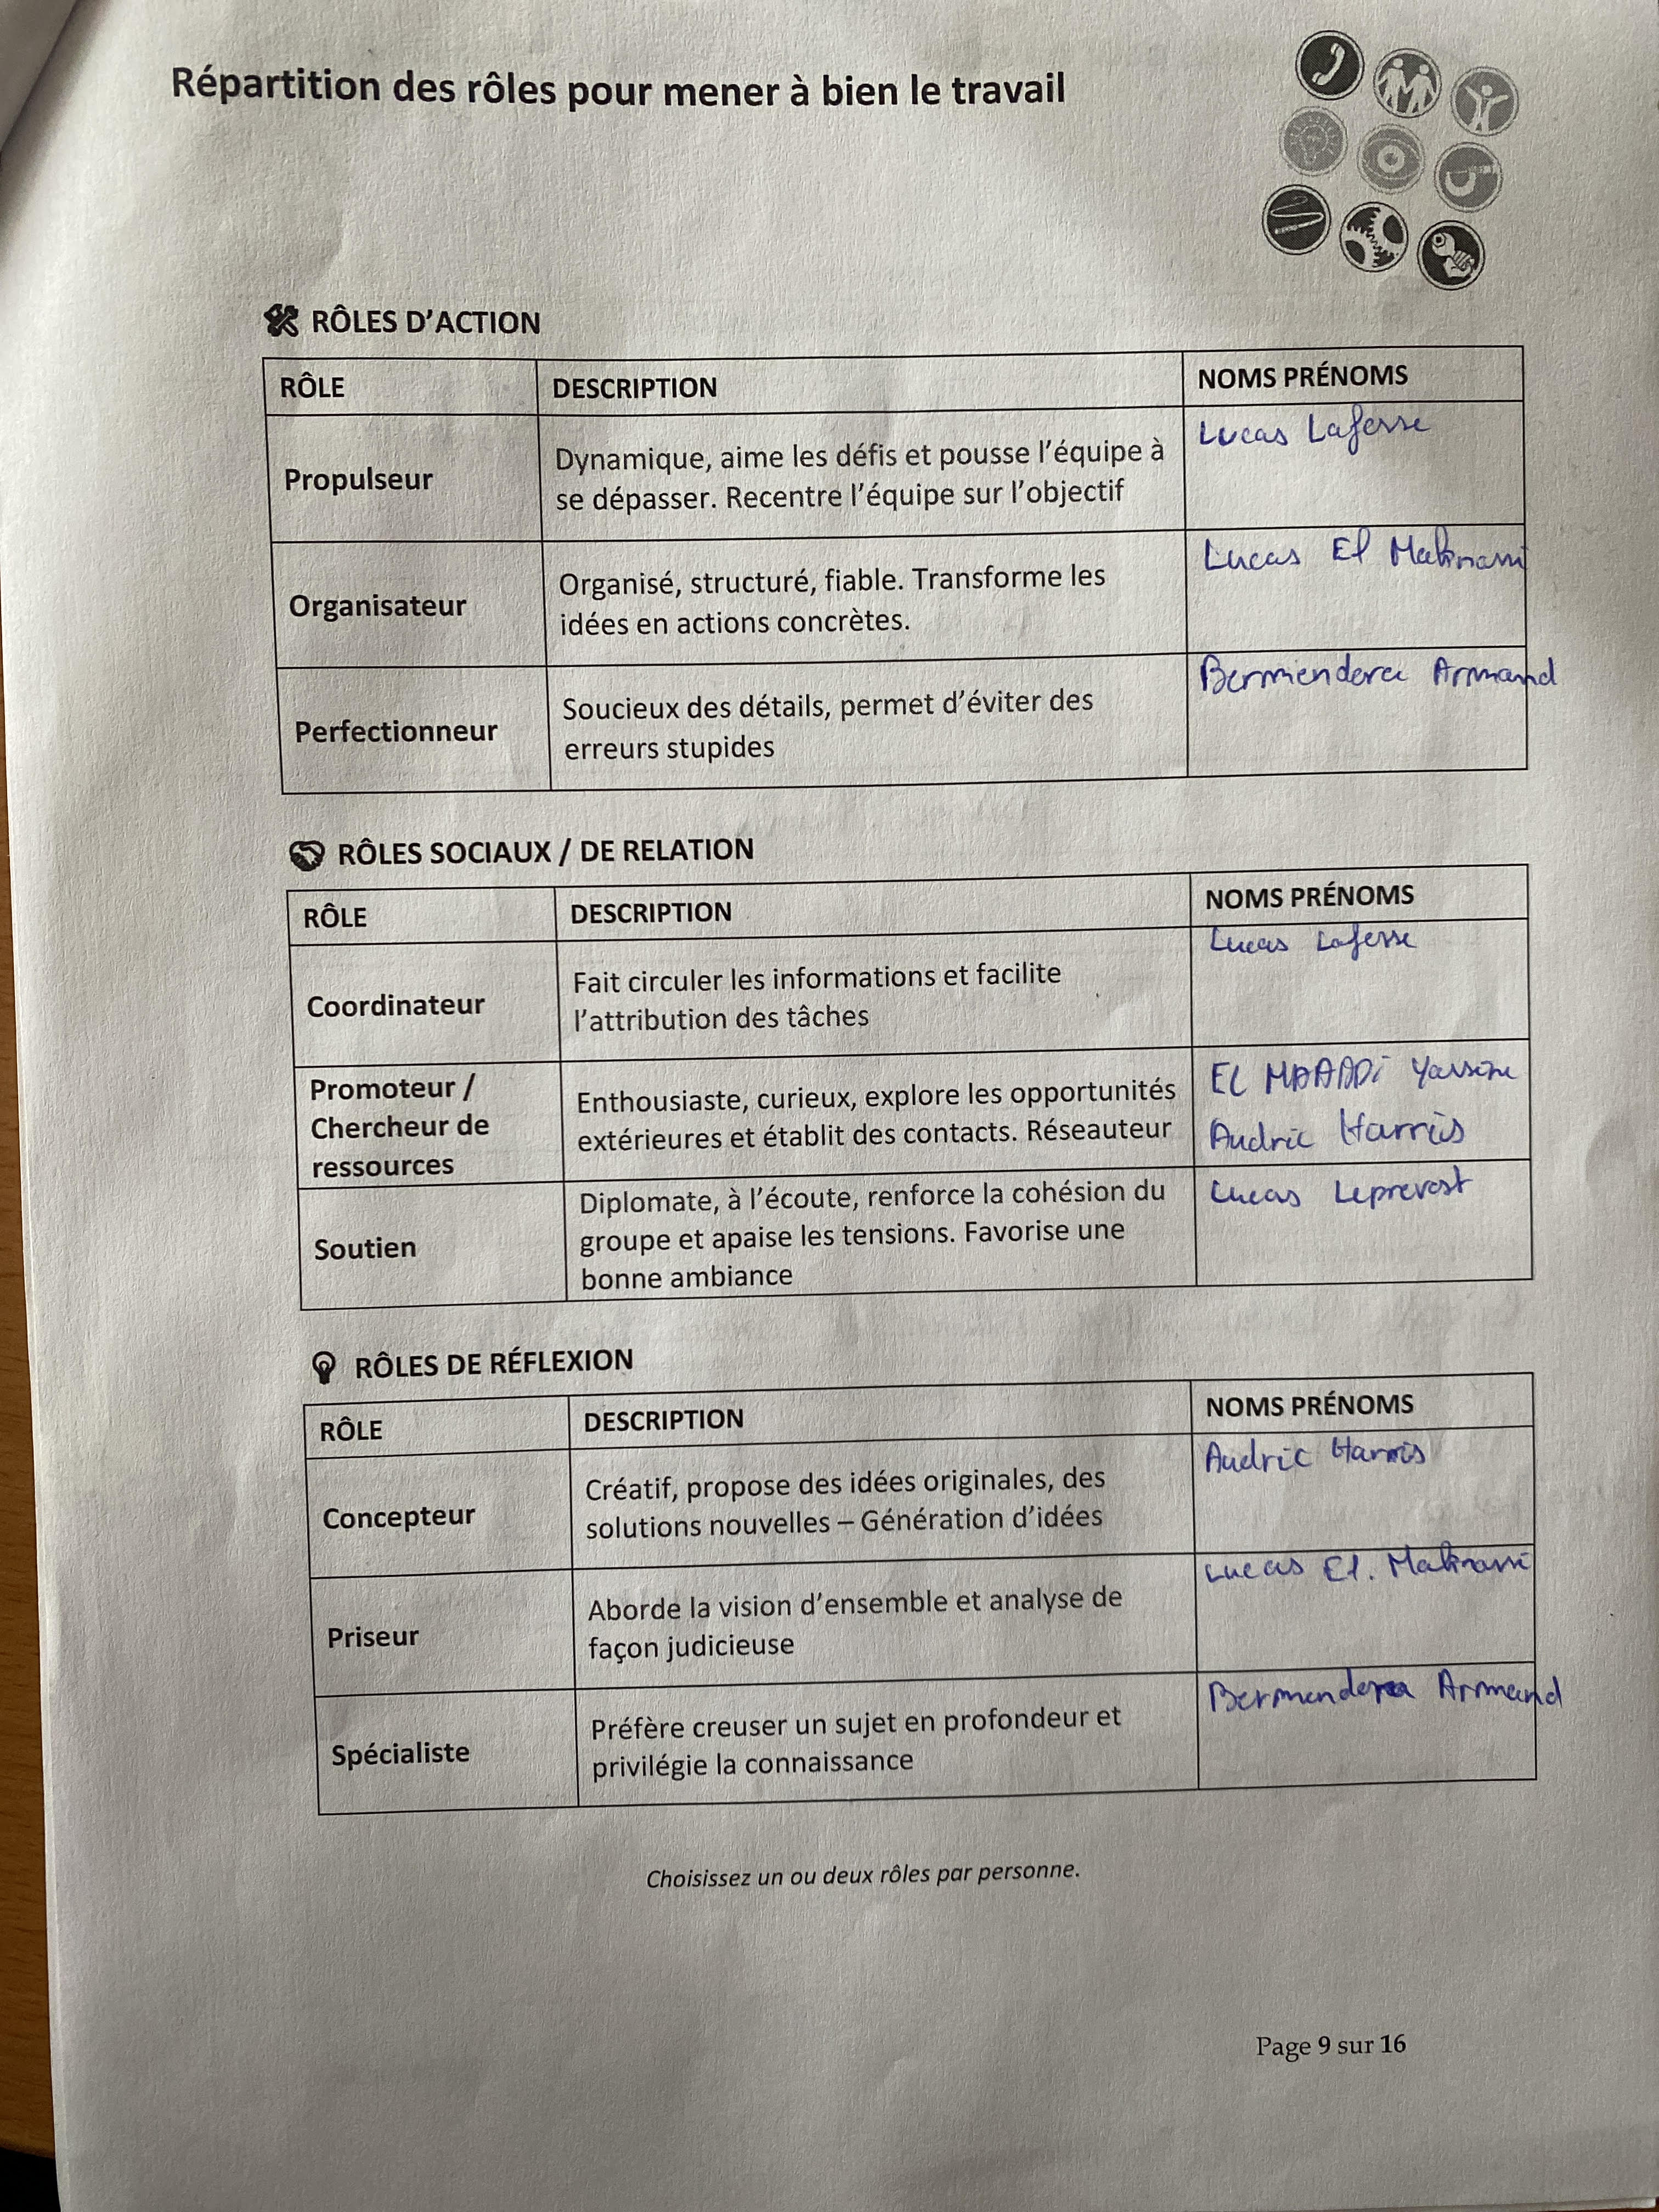 Répartition des rôles pour mener à bien le travail
RÔLES D'ACTION
RÔLE DESCRIPTION NOMS PRÉNOMS
Propulseur
Dynamique, aime les défis et pousse l'équipe à
se dépasser. Recentre l'équipe sur l'objectif
Lucas Laferre
Organisateur
Organisé, structuré, fiable. Transforme les
idées en actions concrètes.
Lucas El Maknani
Perfectionneur
Soucieux des détails, permet d'éviter des
erreurs stupides
Armand
RÔLES SOCIAUX / DE RELATION
RÔLE DESCRIPTION NOMS PRÉNOMS
Coordinateur
Fait circuler les informations et facilite
l'attribution des tâches
Lucas Laferre
Promoteur /
Chercheur de
ressources
Enthousiaste, curieux, explore les opportunités
extérieures et établit des contacts. Réseauteur
EL Yassine
Audric Harris
Soutien
Diplomate, à l'écoute, renforce la cohésion du
groupe et apaise les tensions. Favorise une
bonne ambiance
Lucas Leprevost
RÔLES DE RÉFLEXION
RÔLE DESCRIPTION NOMS PRÉNOMS
Concepteur
Créatif, propose des idées originales, des
solutions nouvelles – Génération d'idées
Audric Harris
Priseur
Aborde la vision d'ensemble et analyse de
façon judicieuse
Lucas El. Maknani
Spécialiste
Préfère creuser un sujet en profondeur et
privilégie la connaissance
Armand
Choisissez un ou deux rôles par personne.
Page 9 sur 16